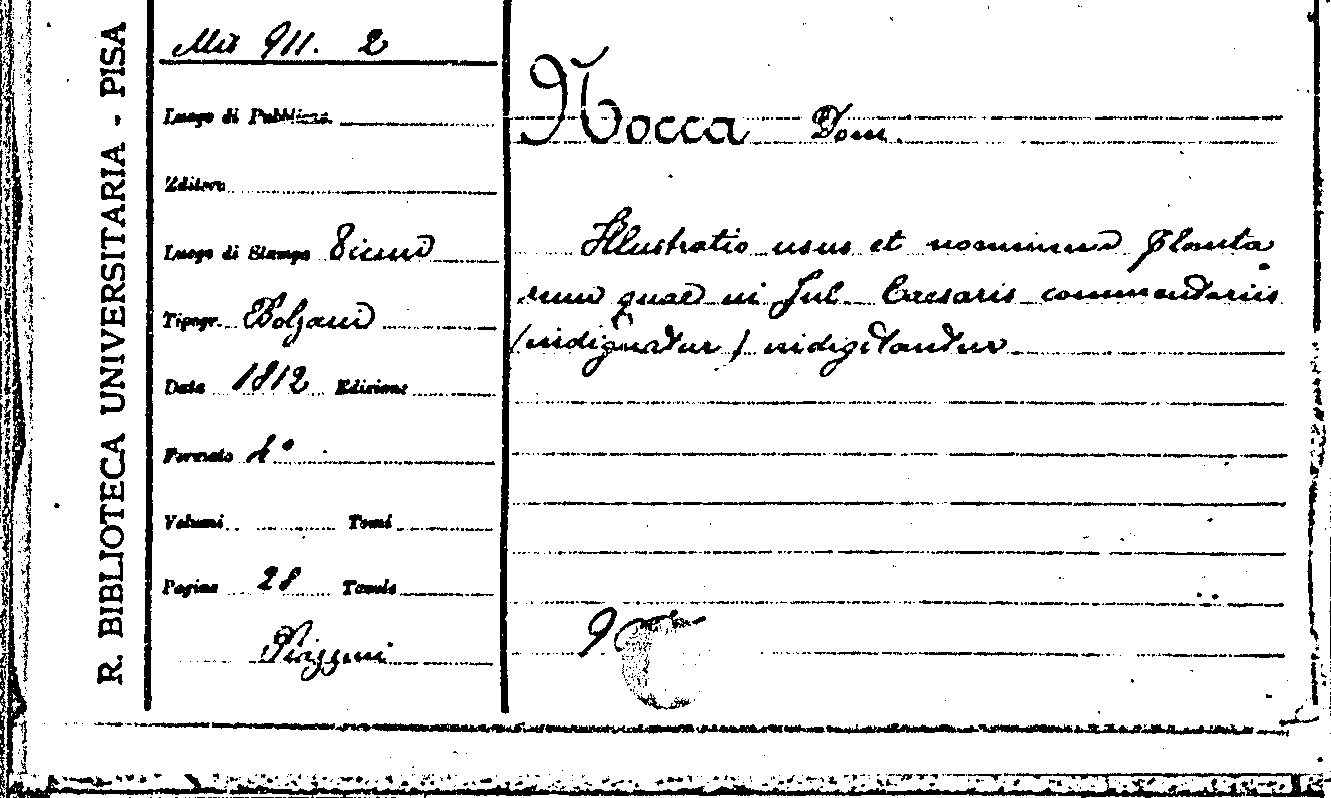 R. BIBLIOTECA UNIVERSITARIA - PISA
Mis 911. 2
Luogo di Pubblicaz.
Editore
Luogo di Stampa Ticini
Tipogr. Bolzani
Data 1812 Edizione
Formato 4°
Volumi Tomi
Pagine 28 Tavole
Nocca Dom.
Illustratio usus et nominum planta
rum quae in Jul. Caesaris commentariis
(indignatur) indigitantur